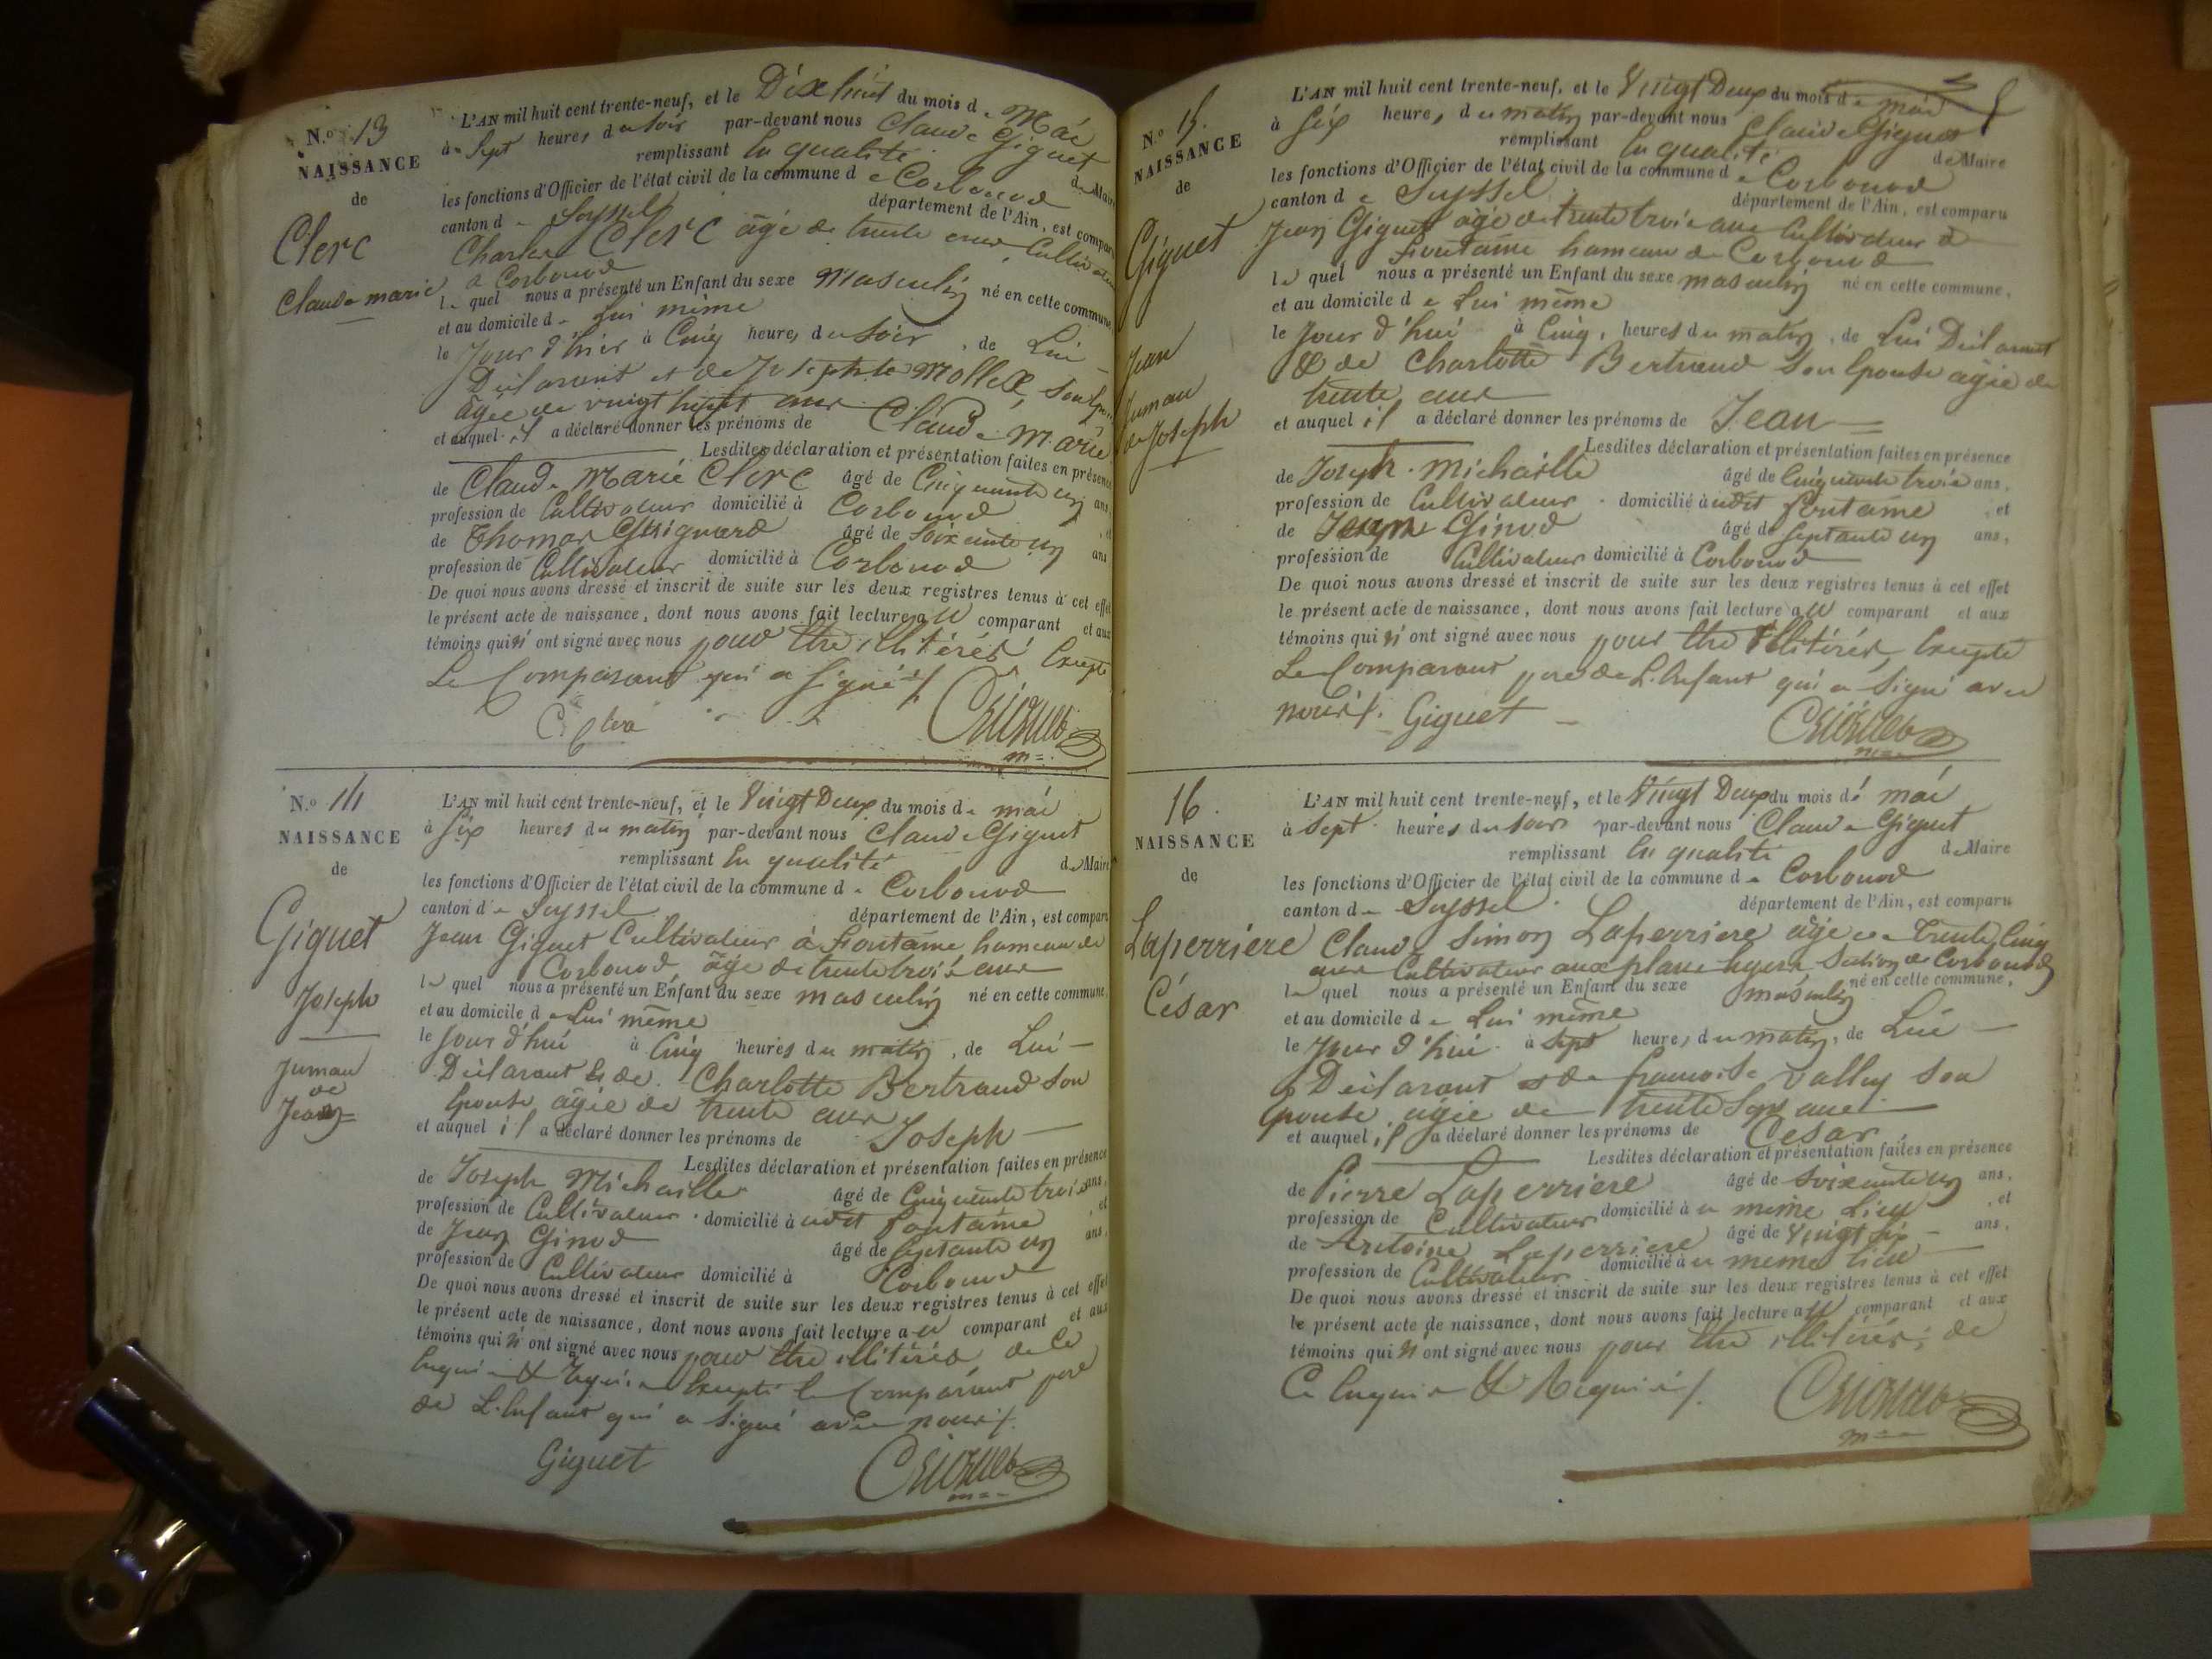 N.º 13
NAISSANCE
de
Clerc
Claude marie
L'AN mil huit cent trente-neuf, et le Dix huit du mois de Mai
à Sept heures du soir par-devant nous Claude Giguet
remplissant En qualité de Maire
les fonctions d'Officier de l'état civil de la commune de Corbonod
canton de Seyssel département de l'Ain, est comparu
Charles Clerc âgé de trente ans Cultivateur
a Corbonod
le quel nous a présenté un Enfant du sexe Masculin né en cette commune,
et au domicile de Lui même
le Jour d'hier à Cinq heures du soir, de Lui
Déclarant et de Josephte Mollex, son
âgée de vingt ans
et auquel il a déclaré donner les prénoms de Claude Marie
Lesdites déclaration et présentation faites en présence
de Claude Marie Clerc âgé de Cinquante un ans
profession de Cultivateur domicilié à Corbonod et
de Thomas Guignard âgé de Soixante un ans
profession de Cultivateur domicilié à Corbonod
De quoi nous avons dressé et inscrit de suite sur les deux registres tenus à cet effet
le présent acte de naissance, dont nous avons fait lecture au comparant et aux
témoins qui n'ont signé avec nous pour être illitérés Excepté
Le Comparant qui a signé
N.º 14
NAISSANCE
de
Giguet
Joseph
Jumau
de
Jean
L'AN mil huit cent trente-neuf, et le Vingt Deux du mois de mai
à Six heures du matin par-devant nous Claude Giguet
remplissant En qualité de Maire
les fonctions d'Officier de l'état civil de la commune de Corbonod
canton de Seyssel département de l'Ain, est comparu
Jean Giguet Cultivateur à Fontaine hameau de
Corbonod âgé de trente trois ans
le quel nous a présenté un Enfant du sexe masculin né en cette commune,
et au domicile de Lui même
le Jour d'hui à Cinq heures du matin, de Lui
Déclarant & de Charlotte Bertrand Son
Epouse âgée de trente ans
et auquel il a déclaré donner les prénoms de Joseph
Lesdites déclaration et présentation faites en présence
de Joseph Michaille âgé de Cinquante trois ans,
profession de Cultivateur domicilié à udit fontaine, et
de Jean Ginod âgé de Septante un ans,
profession de Cultivateur domicilié à Corbonod
De quoi nous avons dressé et inscrit de suite sur les deux registres tenus à cet effet
le présent acte de naissance, dont nous avons fait lecture au comparant et aux
témoins qui n'ont signé avec nous pour être illitérés de ce
Enquis & Requis Excepté le Comparant père
de L'Enfant qui a signé avec nous
Giguet
N.º 15
NAISSANCE
de
Giguet
Jean
Jumau
de Joseph
L'AN mil huit cent trente-neuf, et le Vingt Deux du mois de mai
à Six heures du matin par-devant nous Claude Giguet
remplissant En qualité de Maire
les fonctions d'Officier de l'état civil de la commune de Corbonod
canton de Seyssel département de l'Ain, est comparu
Jean Giguet âgé de trente trois ans Cultivateur à
Fontaine hameau de Corbonod
le quel nous a présenté un Enfant du sexe masculin né en cette commune,
et au domicile de Lui même
le Jour d'hui à Cinq, heures du matin, de Lui Déclarant
& de Charlotte Bertrand Son Epouse âgée de
trente ans
et auquel il a déclaré donner les prénoms de Jean
Lesdites déclaration et présentation faites en présence
de Joseph Michaille âgé de Cinquante trois ans,
profession de Cultivateur domicilié à udit fontaine, et
de Jean Ginod âgé de Septante un ans,
profession de Cultivateur domicilié à Corbonod
De quoi nous avons dressé et inscrit de suite sur les deux registres tenus à cet effet
le présent acte de naissance, dont nous avons fait lecture au comparant et aux
témoins qui n'ont signé avec nous pour être illitérés, Excepté
Le Comparant père de L'Enfant qui a signé avec
nous Giguet
16.
NAISSANCE
de
Laperriere
César
L'AN mil huit cent trente-neuf, et le Vingt Deux du mois de mai
à Sept heures du soir par-devant nous Claude Giguet
remplissant En qualité de Maire
les fonctions d'Officier de l'état civil de la commune de Corbonod
canton de Seyssel département de l'Ain, est comparu
Claude Simon Laperriere âgé de trente Cinq
ans Cultivateur aux Section de Corbonod
le quel nous a présenté un Enfant du sexe masculin né en cette commune,
et au domicile de Lui même
le Jour d'hui à Sept heures du matin, de Lui
Déclarant & de françoise Valley Son
Epouse âgée de trente ans
et auquel il a déclaré donner les prénoms de Cesar
Lesdites déclaration et présentation faites en présence
de Pierre Laperriere âgé de Soixante un ans,
profession de Cultivateur domicilié à u même Lieu, et
de Antoine Laperriere âgé de Vingt Six ans,
profession de Cultivateur domicilié à u meme lieu
De quoi nous avons dressé et inscrit de suite sur les deux registres tenus à cet effet
le présent acte de naissance, dont nous avons fait lecture au comparant et aux
témoins qui n'ont signé avec nous pour être illitérés, de
Ce Enquis & Requis